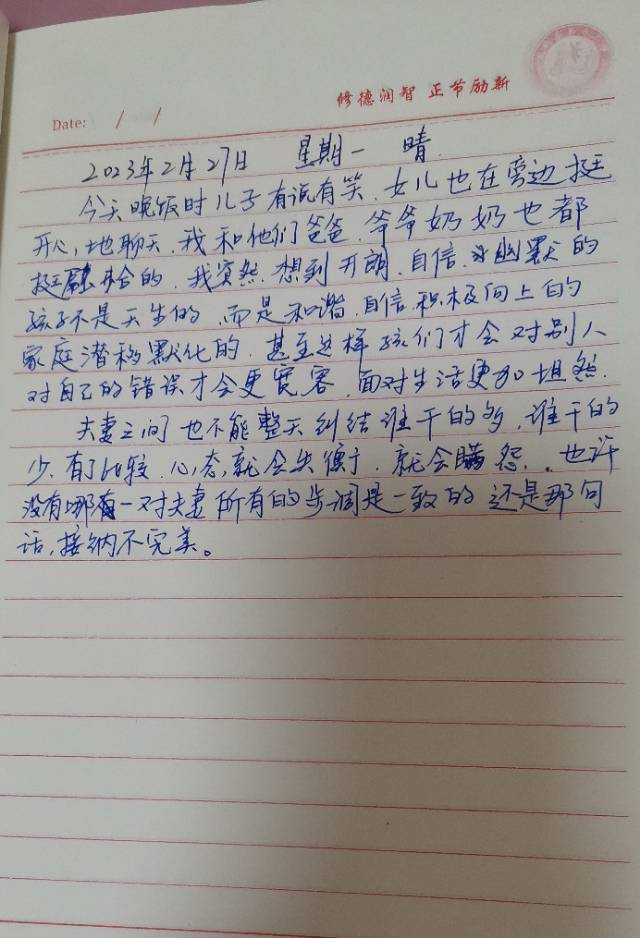 修德润智 正节励新
Date: / /
2023年2月27日 星期一 晴.
今天晚饭时儿子有说有笑、女儿也在旁边挺
开心地聊天、我和他们爸爸、爷爷奶奶也都
挺融洽的、我突然想到开朗、自信、幽默的
孩子不是天生的、而是和谐、自信、积极向上的
家庭潜移默化的、甚至这样孩们才会对别人
对自己的错误才会更宽容、面对生活更加坦然.
夫妻之间也不能整天纠结谁干的多,谁干的
少、有了比较、心态就会失衡、就会瞒怨、也许
没有哪有一对夫妻所有的步调是一致的 还是那句
话,接纳不完美。